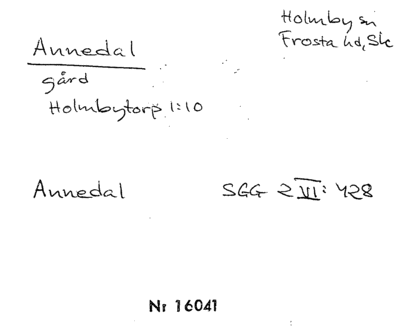 Holmby sn
Frosta hd, Sk
Annedal
gård
Holmbytorp 1:10
Annedal SGG 2 VI: 428
Nr 16041